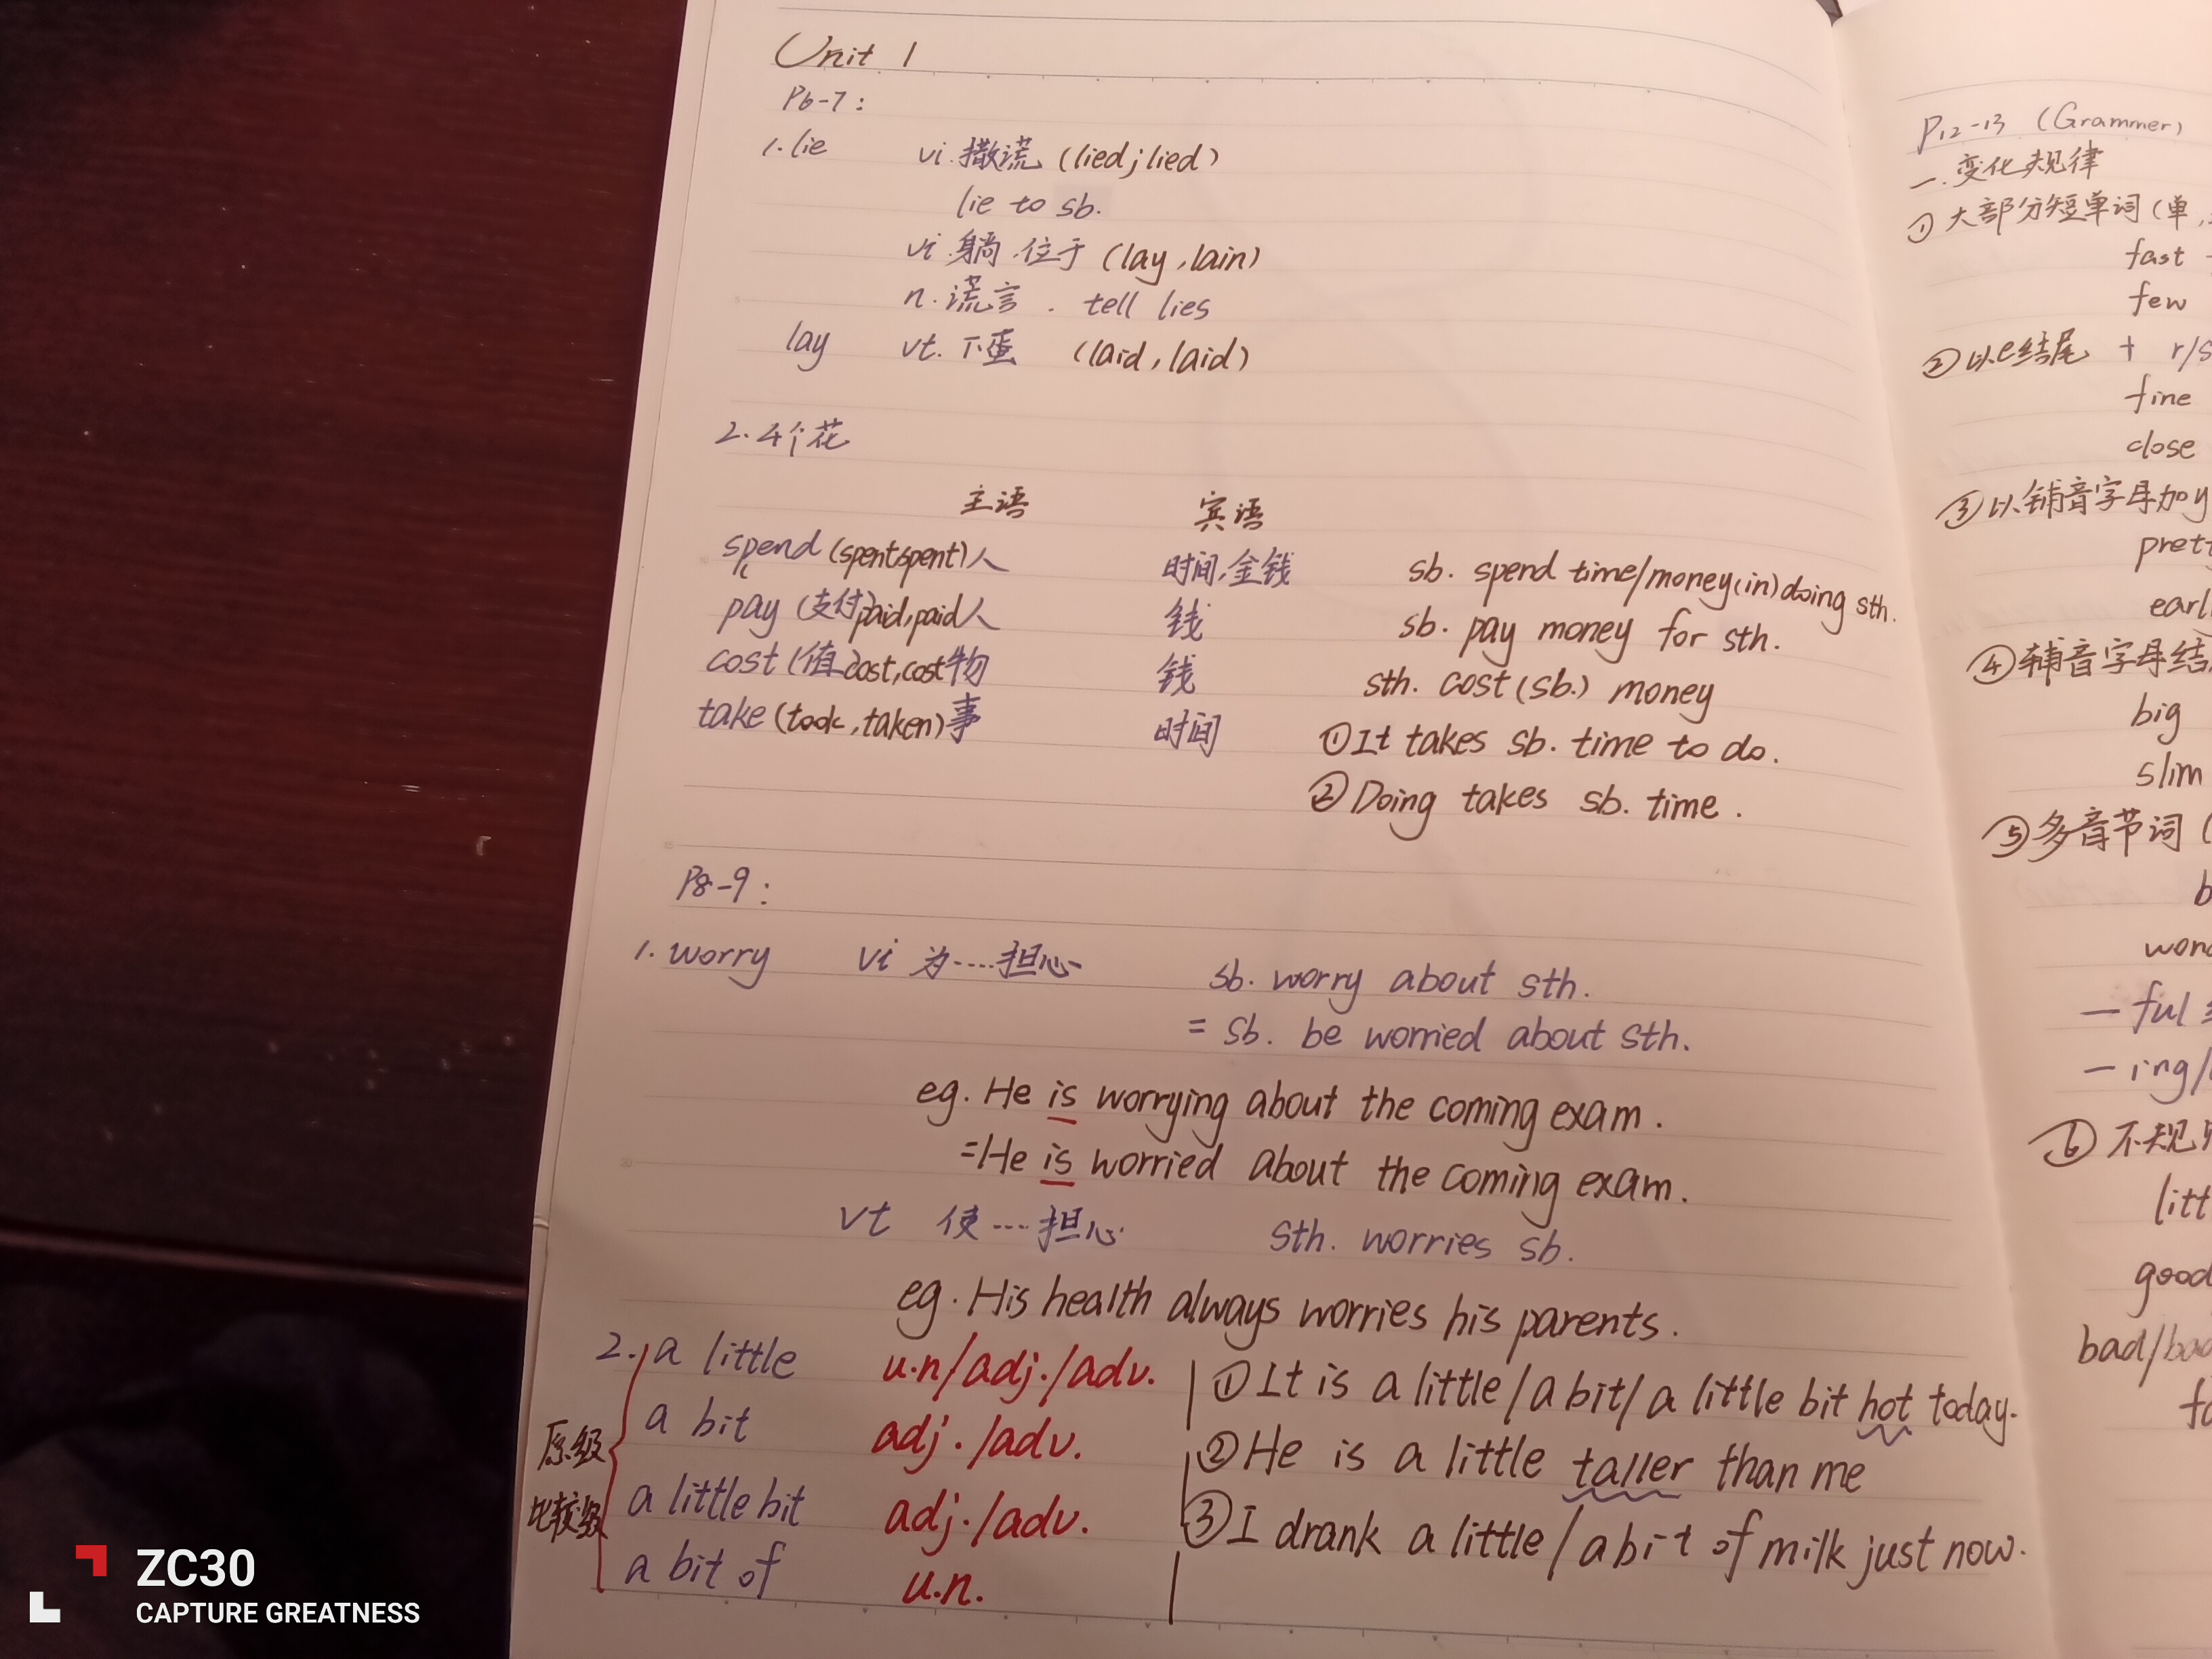 Unit 1
P6-7:
1. lie vi. 撒谎 (lied; lied)
lie to sb.
vi. 躺. 位于 (lay, lain)
n. 谎言. tell lies
lay vt. 下蛋 (laid, laid)
2. 4个花
主语 宾语
spend (spent, spent) 人 时间, 金钱 sb. spend time/money (in) doing sth.
pay (支付) paid, paid 人 钱 sb. pay money for sth.
cost (值) cost, cost 物 钱 sth. cost (sb.) money
take (took, taken) 事 时间 ① It takes sb. time to do.
② Doing takes sb. time.
P8-9:
1. worry vi 为····担心 sb. worry about sth.
= sb. be worried about sth.
eg. He is worrying about the coming exam.
=He is worried about the coming exam.
vt 使····担心 sth. worries sb.
eg. His health always worries his parents.
2. a little u.n/adj./adv. ① It is a little/a bit/a little bit hot today.
a bit adj./adv. ② He is a little taller than me
原级
比较级
a little bit adj./adv. ③ I drank a little/a bit of milk just now.
a bit of u.n.
P12-13 (Grammer)
一. 变化规律
① 大部分短单词 (单,
fast
few
② 以e结尾 + r/s
fine
close
③ 以辅音字母加y
prett
earl
④ 辅音字母结
big
slim
⑤ 多音节词 (
b
won
—ful
—ing/
⑥ 不规
litt
good
bad/bad
fa
ZC30
CAPTURE GREATNESS